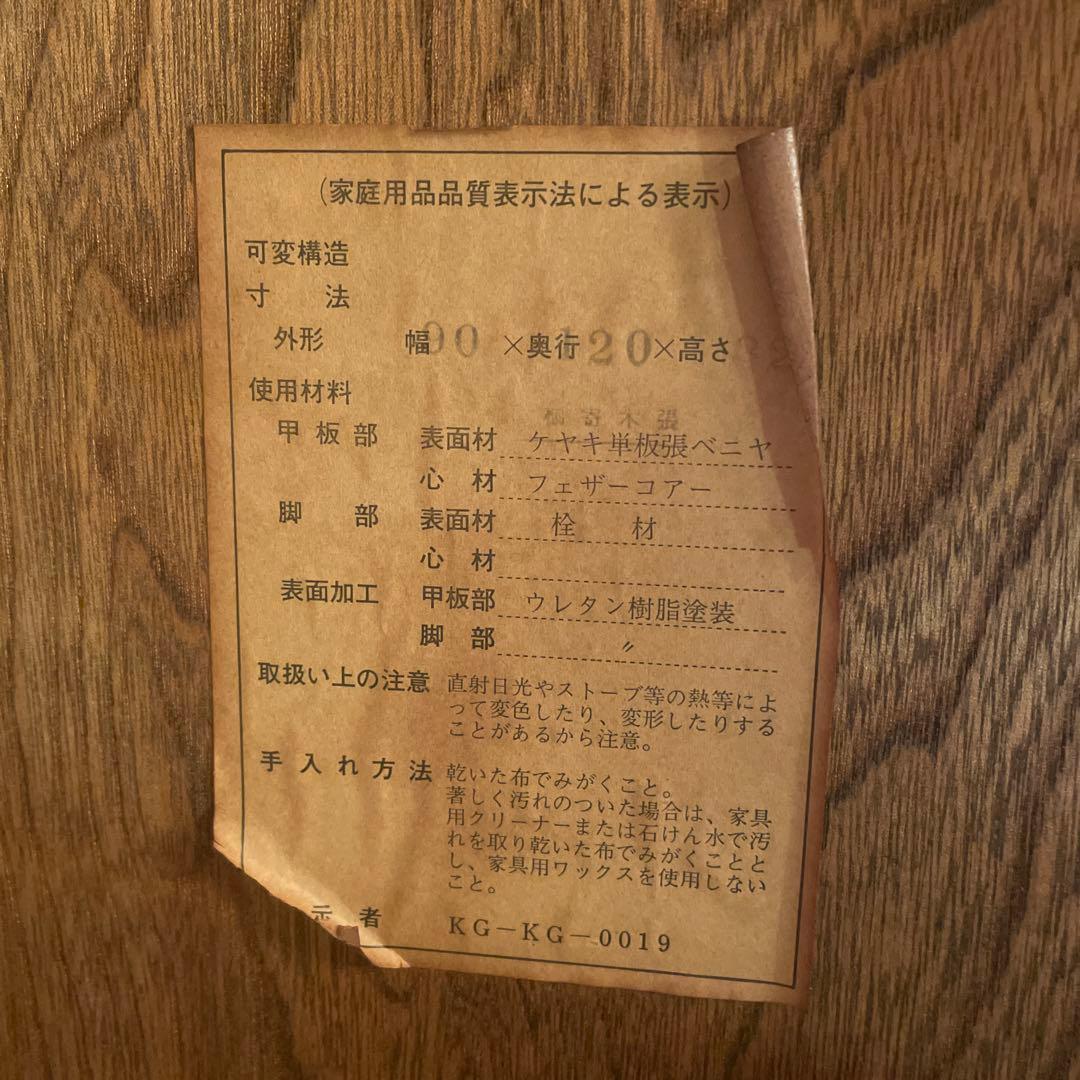 (家庭用品品質表示法による表示)
可変構造
寸 法
外形 幅90 ×奥行120×高さ
使用材料
寄木張
甲板部 表面材 ケヤキ単板張ベニヤ
心材 フェザーコアー
脚部 表面材 栓材
心材
表面加工 甲板部 ウレタン樹脂塗装
脚部 〃
取扱い上の注意 直射日光やストーブ等の熱等によ
って変色したり、変形したりする
ことがあるから注意。
手入れ方法 乾いた布でみがくこと。
著しく汚れのついた場合は、家具
用クリーナーまたは石けん水で汚
れを取り乾いた布でみがくことと
し、家具用ワックスを使用しない
こと。
示者 KG-KG-0019